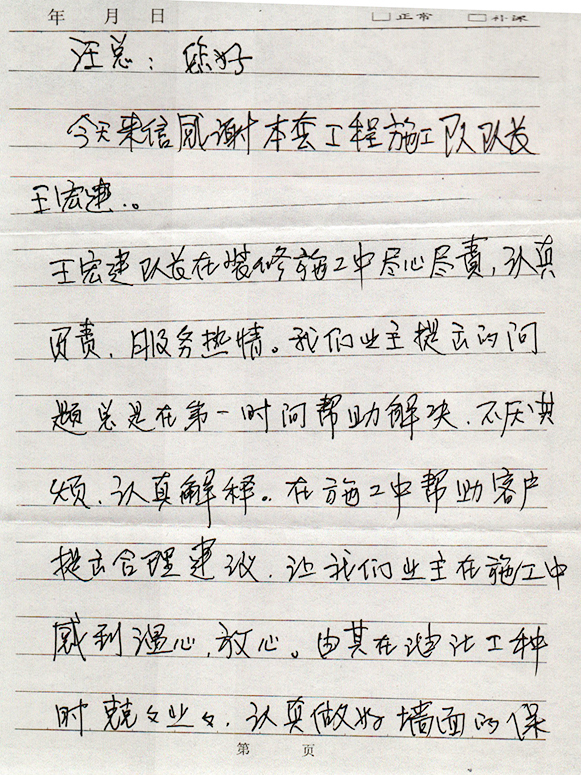 年 月 日 □正常 □补课
汪总：您好
今天来信感谢本套工程施工队队长
王宏建。
王宏建队长在装修施工中尽心尽责，认真
负责，服务热情。我们业主提出的问
题总是在第一时间帮助解决、不厌其
烦、认真解释。在施工中帮助客户
提出合理建议、让我们业主在施工中
感到温心，放心。由其在油计工种
时兢々业々、认真做好墙面的保
第 页